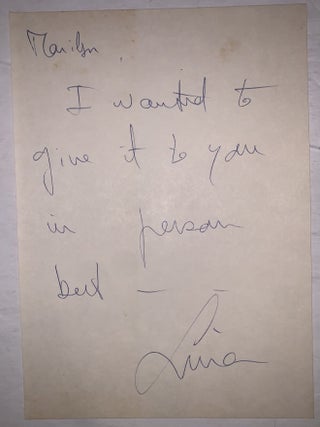 Marilyn,
I wanted to
give it to you
in person
but — —
Lina